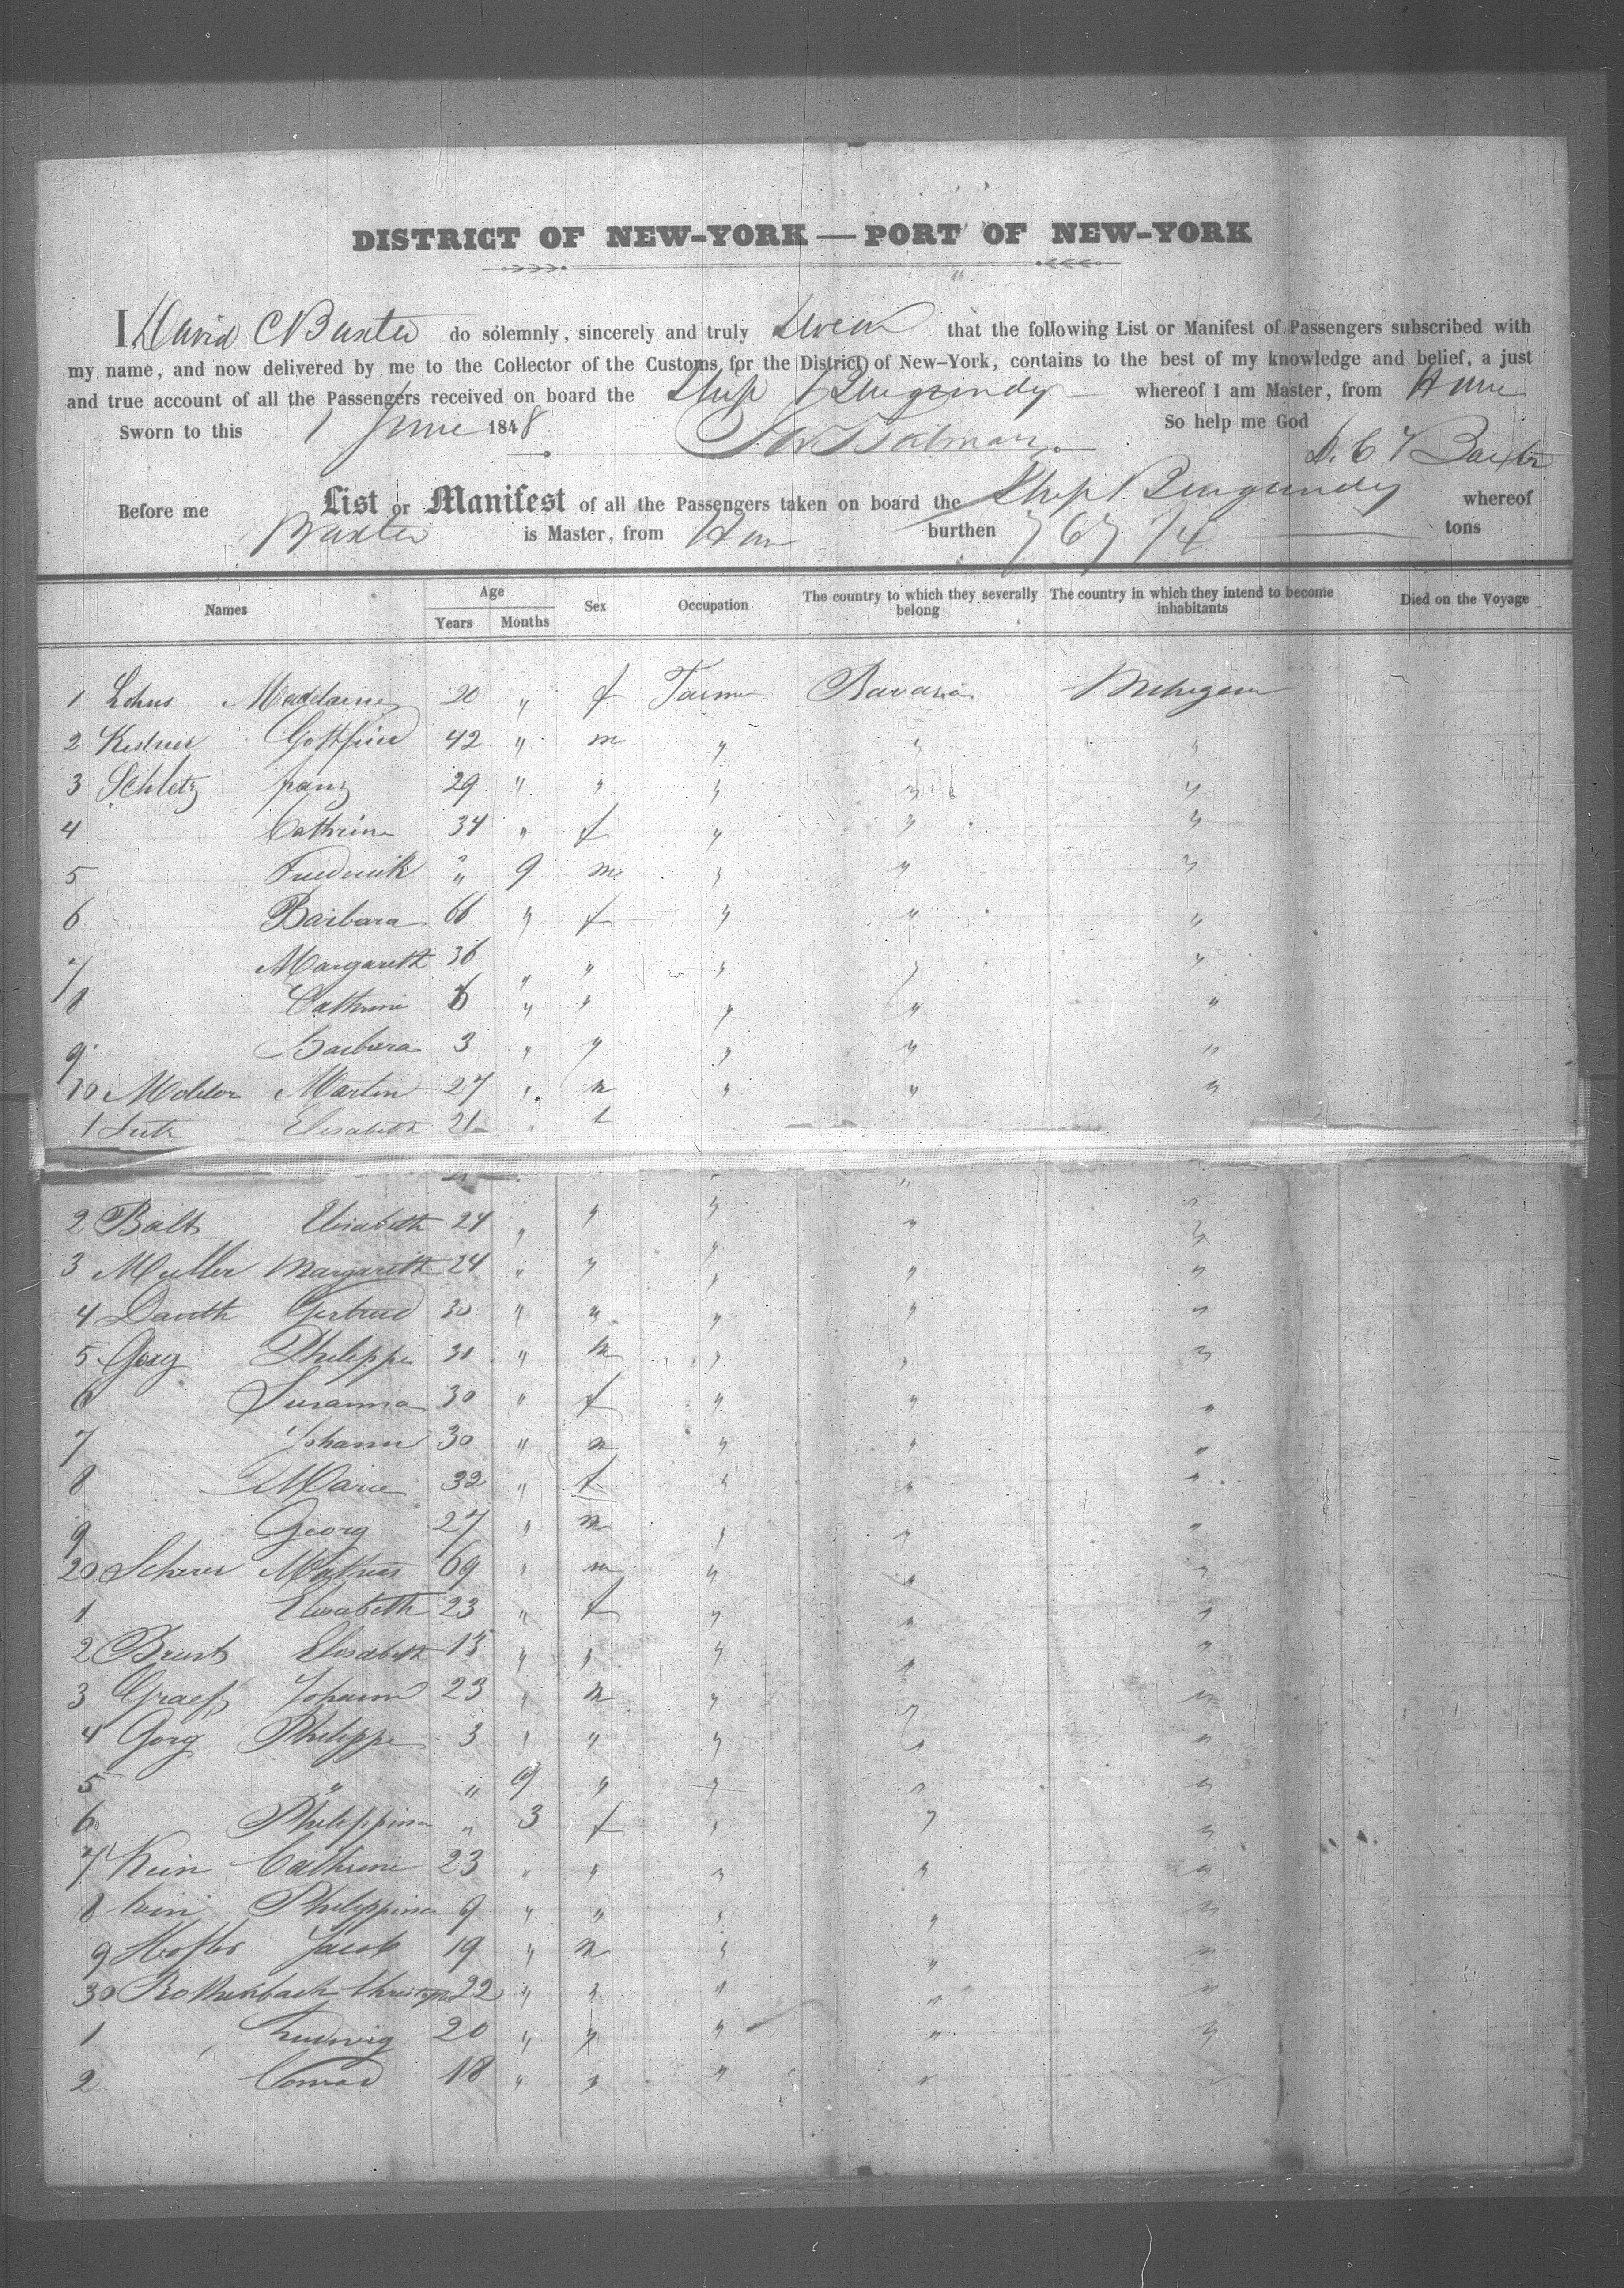 DISTRICT OF NEW-YORK — PORT OF NEW-YORK
I, David C Baxter do solemnly, sincerely and truly Swear that the following List or Manifest of Passengers subscribed with
my name, and now delivered by me to the Collector of the Customs for the District of New-York, contains to the best of my knowledge and belief, a just
and true account of all the Passengers received on board the Ship Burgundy whereof I am Master, from Havre
Sworn to this 1 June 1848. So help me God
D. C Baxter
Before me List or Manifest of all the Passengers taken on board the Ship Burgundy whereof
Baxter is Master, from Hav burthen 767 74 tons
Names Age Years Months Sex Occupation The country to which they severally belong The country in which they intend to become inhabitants Died on the Voyage
1 Madelaine 20 " f Farmer Bavaria Michigan
2 Kestner Gottfried 42 " m " " "
3 Schletz franz 29 " " " " "
4 Cathrine 34 " f " " "
5 Frederick " 9 m " " "
6 Barbara 66 " f " " "
7 Margareth 36 " " " " "
8 Cathrine 6 " " " " "
9 Barbara 3 " " " " "
10 Martin 27 " m " " "
1 Elisabeth 21 "
2 Balts Elisabeth 24 " " " " "
3 Muller Margareth 24 " " " " "
4 Gertrud 30 " " " " "
5 Gorg Philippe 31 " m " " "
6 Susanna 30 " f " " "
7 Johann 30 " m " " "
8 Marie 32 " f " " "
9 Georg 27 " m " " "
20 Scherer Mathias 69 " m " " "
1 Elisabeth 23 " f " " "
2 Elisabeth 13 " " " " "
3 Graeff Johann 23 " m " " "
4 Gorg Philippe 3 " " " " "
5 " " 9 " " " "
6 Philippina " 3 f " " "
7 Kein Cathrine 23 " " " " "
8 Kein Philippina 9 " " " " "
9 Jacob 19 " m " " "
30 Rothenbach 22 " " " " "
1 Ludwig 20 " " " " "
2 Conrad 18 " " " " "